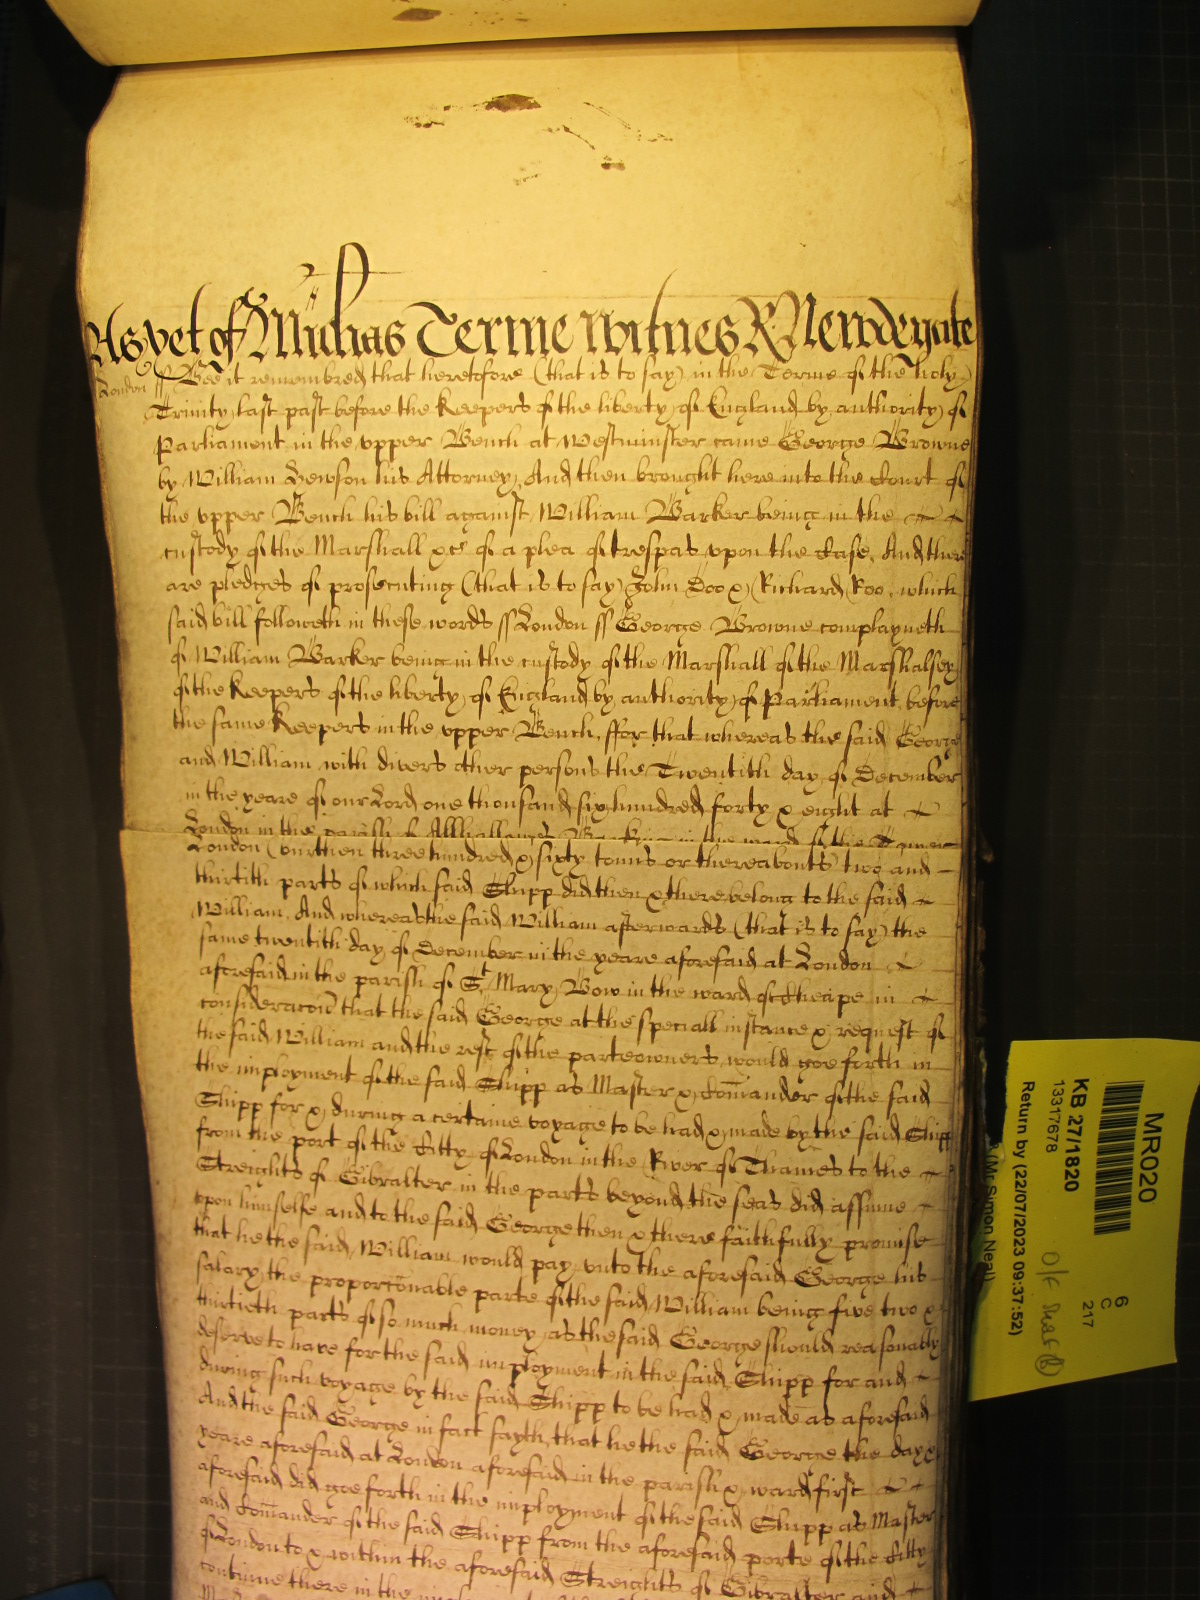 As yet of Michas Terme Witnes R Newdegate
London ss Bee it remembred that heretofore (that is to say) in the Terme of the holy
Trinity last past before the Keepers of the liberty of England by authority of
Parliament in the vpper Bench at Westminster came George Browne
by William Hewson his Attorney, And then brought here into the Court of
the vpper Bench his bill against William Barker being in the
custody of the Marshall &c of a plea of trespas vpon the Case, And there
are pledges of prosecuting (that is to say) John Doo & Richard Roo, which
said bill followeth in these words ss London ss George Browne complayneth
of William Barker being in the custody of the Marshall of the Marshalsey
of the Keepers of the liberty of England by authority of Parliament before
the same Keepers in the vpper Bench, ffor that whereas the said George
and William with divers other persons the Twentith day of December
in the yeare of our Lord one thousand six hundred forty & eight at
London in the parish of Allhallowes Barking in the ward of the Tower
London (burthen three hundred & sixty tonns or thereabouts) two and
thirtith parts of which said Shipp did then & there belong to the said
William, And whereas the said William afterwards (that is to say) the
same twentith day of December in the yeare aforesaid at London
aforesaid in the parish of St Mary Bow in the ward of Cheape in
consideracon that the said George at the speciall instance & request of
the said William and the rest of the parteowners, would goe forth in
the imployment of the said Shipp as Master & Comander of the said
Shipp for & during a certaine voyage to be had & made by the said Shipp
from the port of the Citty of London in the River of Thames to the
Streights of Gibralter in the parts beyond the seas did assume
vpon himselfe and to the said George then & there faithfully promise
that he the said William would pay vnto the aforesaid George his
salary, the proportonable parte of the said William being five two &
thirtieth parts of so much money as the said George should reasonably
deserve to have for the said imployment in the said Shipp for and
during such voyage by the said Shipp to be had & made as aforesaid
And the said George in fact sayth, that he the said George the day &
yeare aforesaid at London aforesaid in the parish & ward first
aforesaid did goe forth in the imployment of the said Shipp as Master
and Comander of the said Shipp from the aforesaid porte of the Citty
of London to & within the aforesaid Streights of Gibralter and
continue there in the
MR020
6
C
217
KB 27/1820
13317678
Return by (22/07/2023 09:37:52)
(Mr Simon Neal)